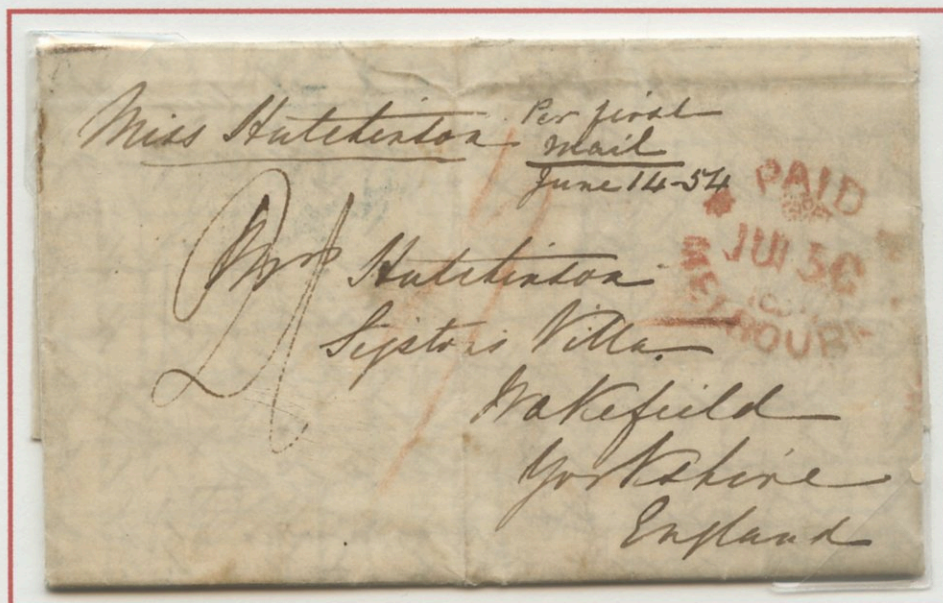 Miss Hutchinson
Per first
mail
June 14-54
PAID
MELBOURN
Mrs Hutchinson
Villa
Wakefield
Yorkshire
England